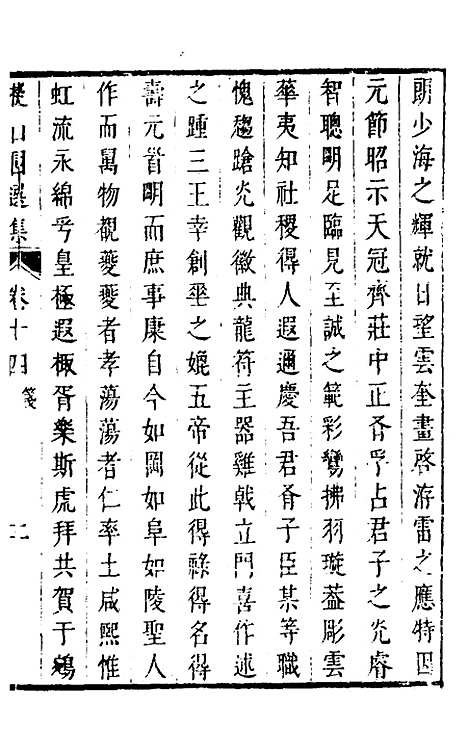 朗少海之輝就日望雲奎畫啓洊雷之應特四
元節昭示天冠齊莊中正斉孚占君子之光睿
智聰明足臨見至誠之範彩鸞拂羽璇葢彫雲
華夷知社稷得人遐邇慶吾君斉子臣某等職
愧趨蹌光觀徽典龍符主器雞戟立門喜作述
之踵三王幸創垂之媲五帝從此得祿得名得
壽元首明而庶事康自今如岡如阜如陵聖人
作而萬物覩夔夔者孝蕩蕩者仁率土咸熙惟
虹流永綿乎皇極遐陬胥樂斯虎拜共賀于鵷
樓山園選集 卷十四 箋 二